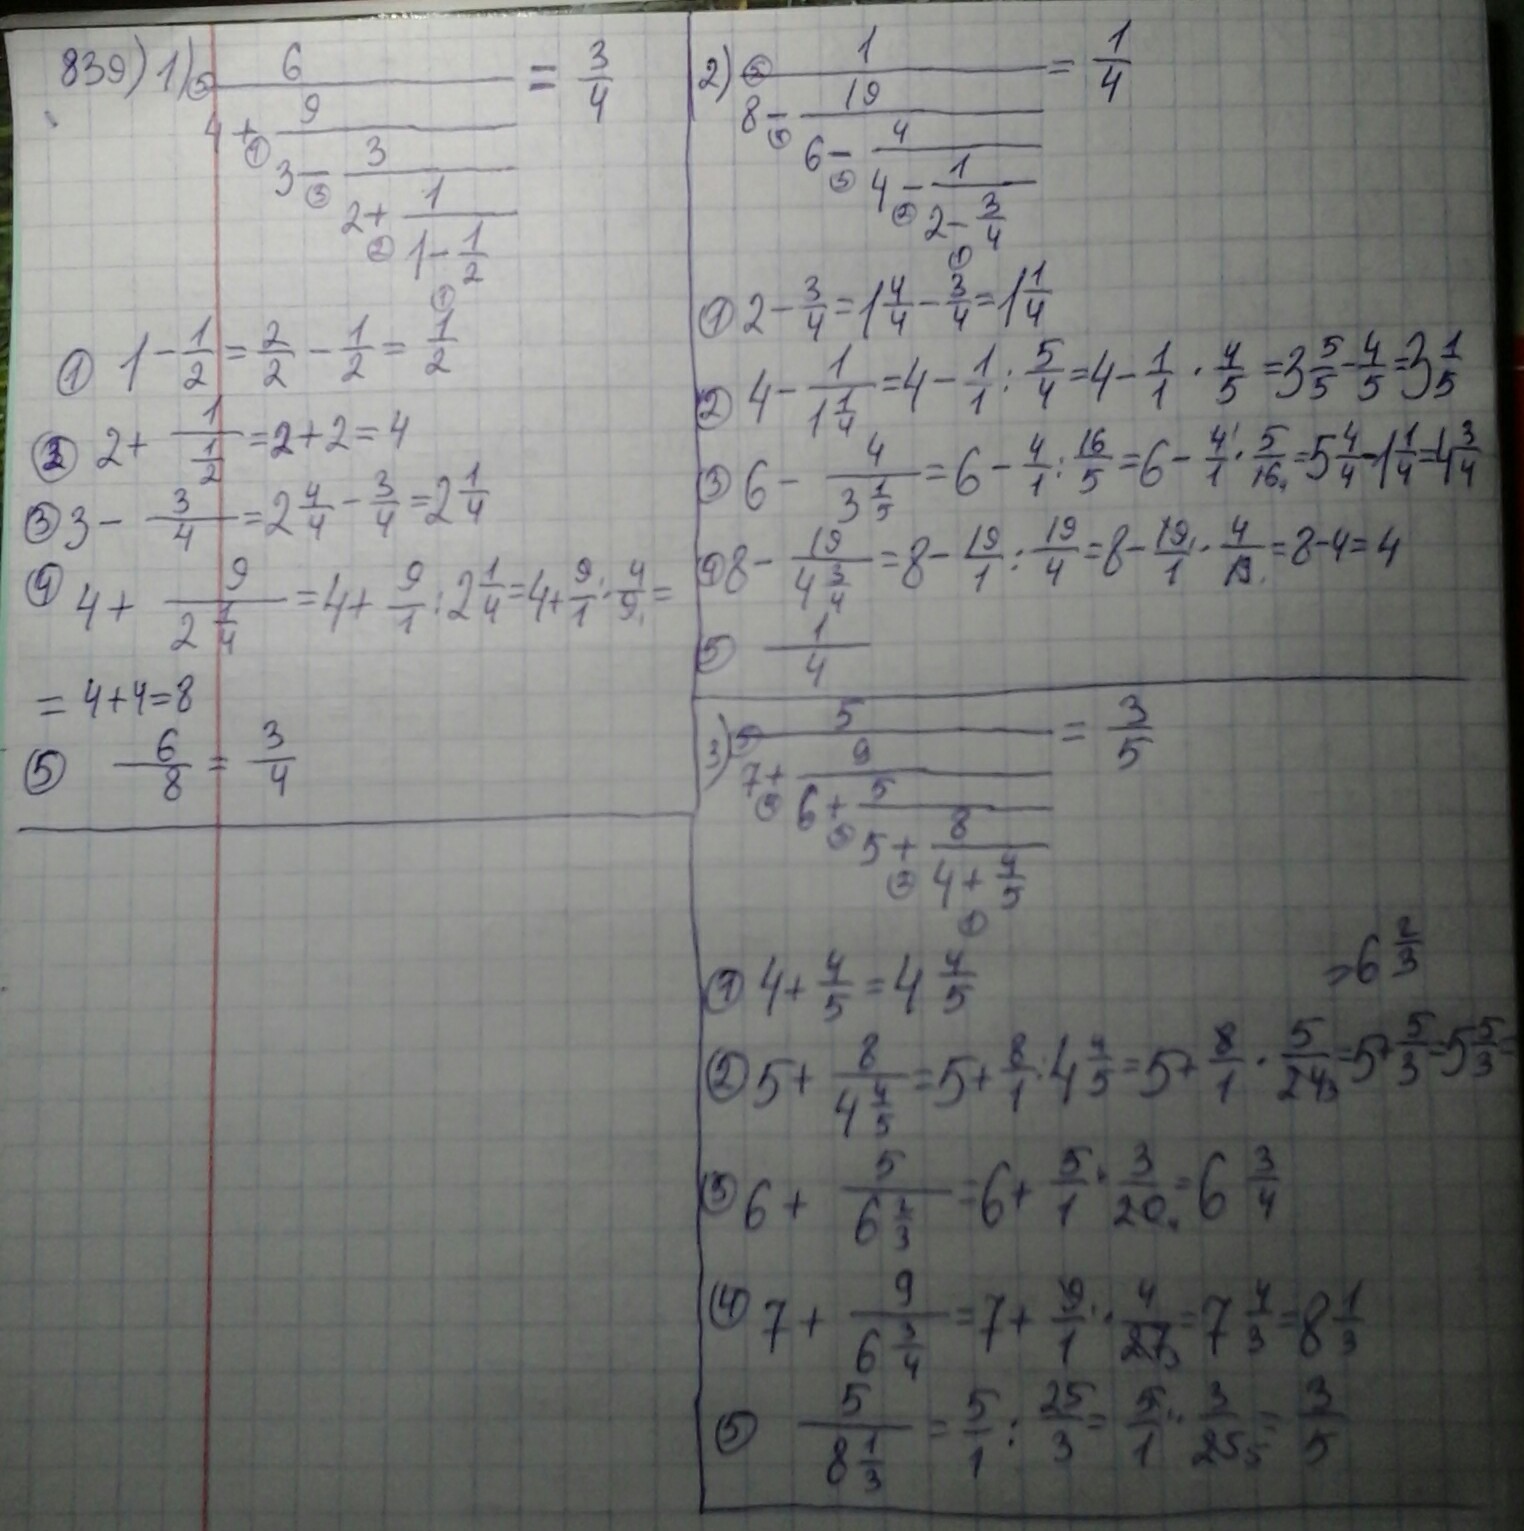 839) 1) ⑤ 6/(4 +④ 9/(3 −③ 3/(2 +② 1/(1 −① 1/2)))) = 3/4
① 1 − 1/2 = 2/2 − 1/2 = 1/2
② 2 + 1/(1/2) = 2 + 2 = 4
③ 3 − 3/4 = 2 4/4 − 3/4 = 2 1/4
④ 4 + 9/(2 1/4) = 4 + 9/1 : 2 1/4 = 4 + 9/1 · 4/9 =
= 4 + 4 = 8
⑤ 6/8 = 3/4
2) ⑤ 1/(8 −④ 19/(6 −③ 4/(4 −② 1/(2 −① 3/4)))) = 1/4
① 2 − 3/4 = 1 4/4 − 3/4 = 1 1/4
② 4 − 1/(1 1/4) = 4 − 1/1 : 5/4 = 4 − 1/1 · 4/5 = 3 5/5 − 4/5 = 3 1/5
③ 6 − 4/(3 1/5) = 6 − 4/1 : 16/5 = 6 − 4/1 · 5/16 = 5 4/4 − 1 1/4 = 4 3/4
④ 8 − 19/(4 3/4) = 8 − 19/1 : 19/4 = 8 − 19/1 · 4/19 = 8 − 4 = 4
⑤ 1/4
3) ⑤ 5/(7 +④ 9/(6 +③ 5/(5 +② 8/(4 +① 4/5)))) = 3/5
① 4 + 4/5 = 4 4/5
② 5 + 8/(4 4/5) = 5 + 8/1 : 4 4/5 = 5 + 8/1 · 5/24 = 5 + 5/3 = 5 5/3 =
= 6 2/3
③ 6 + 5/(6 2/3) = 6 + 5/1 · 3/20 = 6 3/4
④ 7 + 9/(6 3/4) = 7 + 9/1 · 4/27 = 7 4/3 = 8 1/3
⑤ 5/(8 1/3) = 5/1 : 25/3 = 5/1 · 3/25 = 3/5